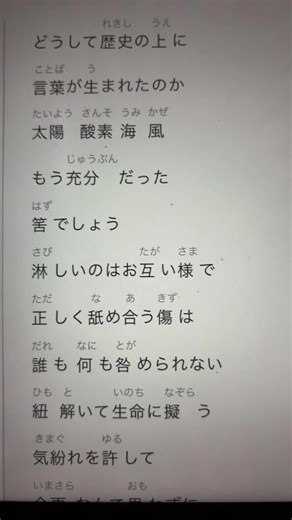 れきし うえ
どうして歴史の上に
ことば う
言葉が生まれたのか
たいよう さんそ うみ かぜ
太陽 酸素 海 風
じゅうぶん
もう充分 だった
はず
筈でしょう
さび たが さま
淋しいのはお互い様で
ただ な あ きず
正しく舐め合う傷は
だれ なに とが
誰も何も咎められない
ひも と いのち なぞら
紐解いて生命に擬う
きまぐ ゆる
気紛れを許して
いまさら おも